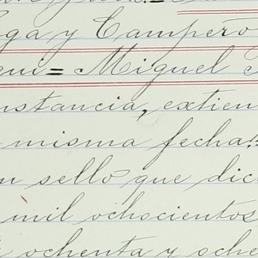 ga y Campero
= Miguel
instancia, extien
misma fecha:
n sello que dic
mil ochocientos
ochenta y oche